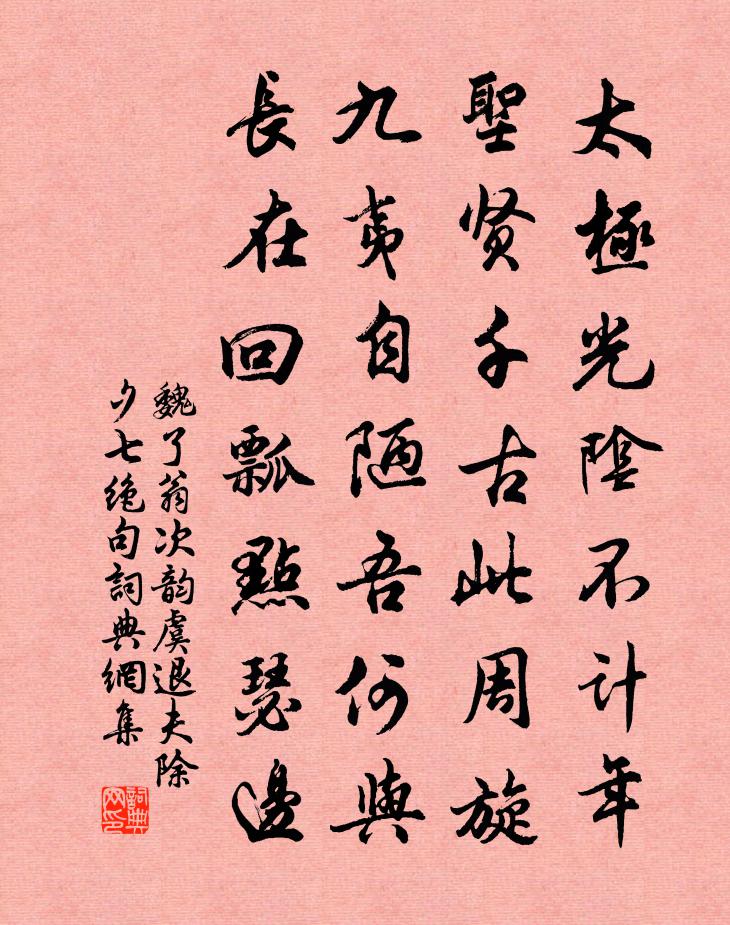 太極光陰不計年
聖贤千古此周旋
九夷自陋吾何與
長在回瓢點瑟邊
魏了翁次韵虞退夫除
夕七绝句詞典網集
詞典网印